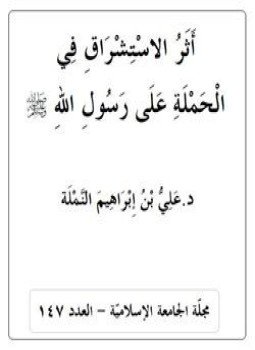 أَثَرُ الاسْتِشْرَاقِ فِي
الْحَمْلَةِ عَلَى رَسُولِ اللهِ ﷺ
د.عَلِيُّ بْنُ إِبْرَاهِيمَ النَّمْلَة
مجلّة الجامعة الإسلاميّة – العدد ١٤٧